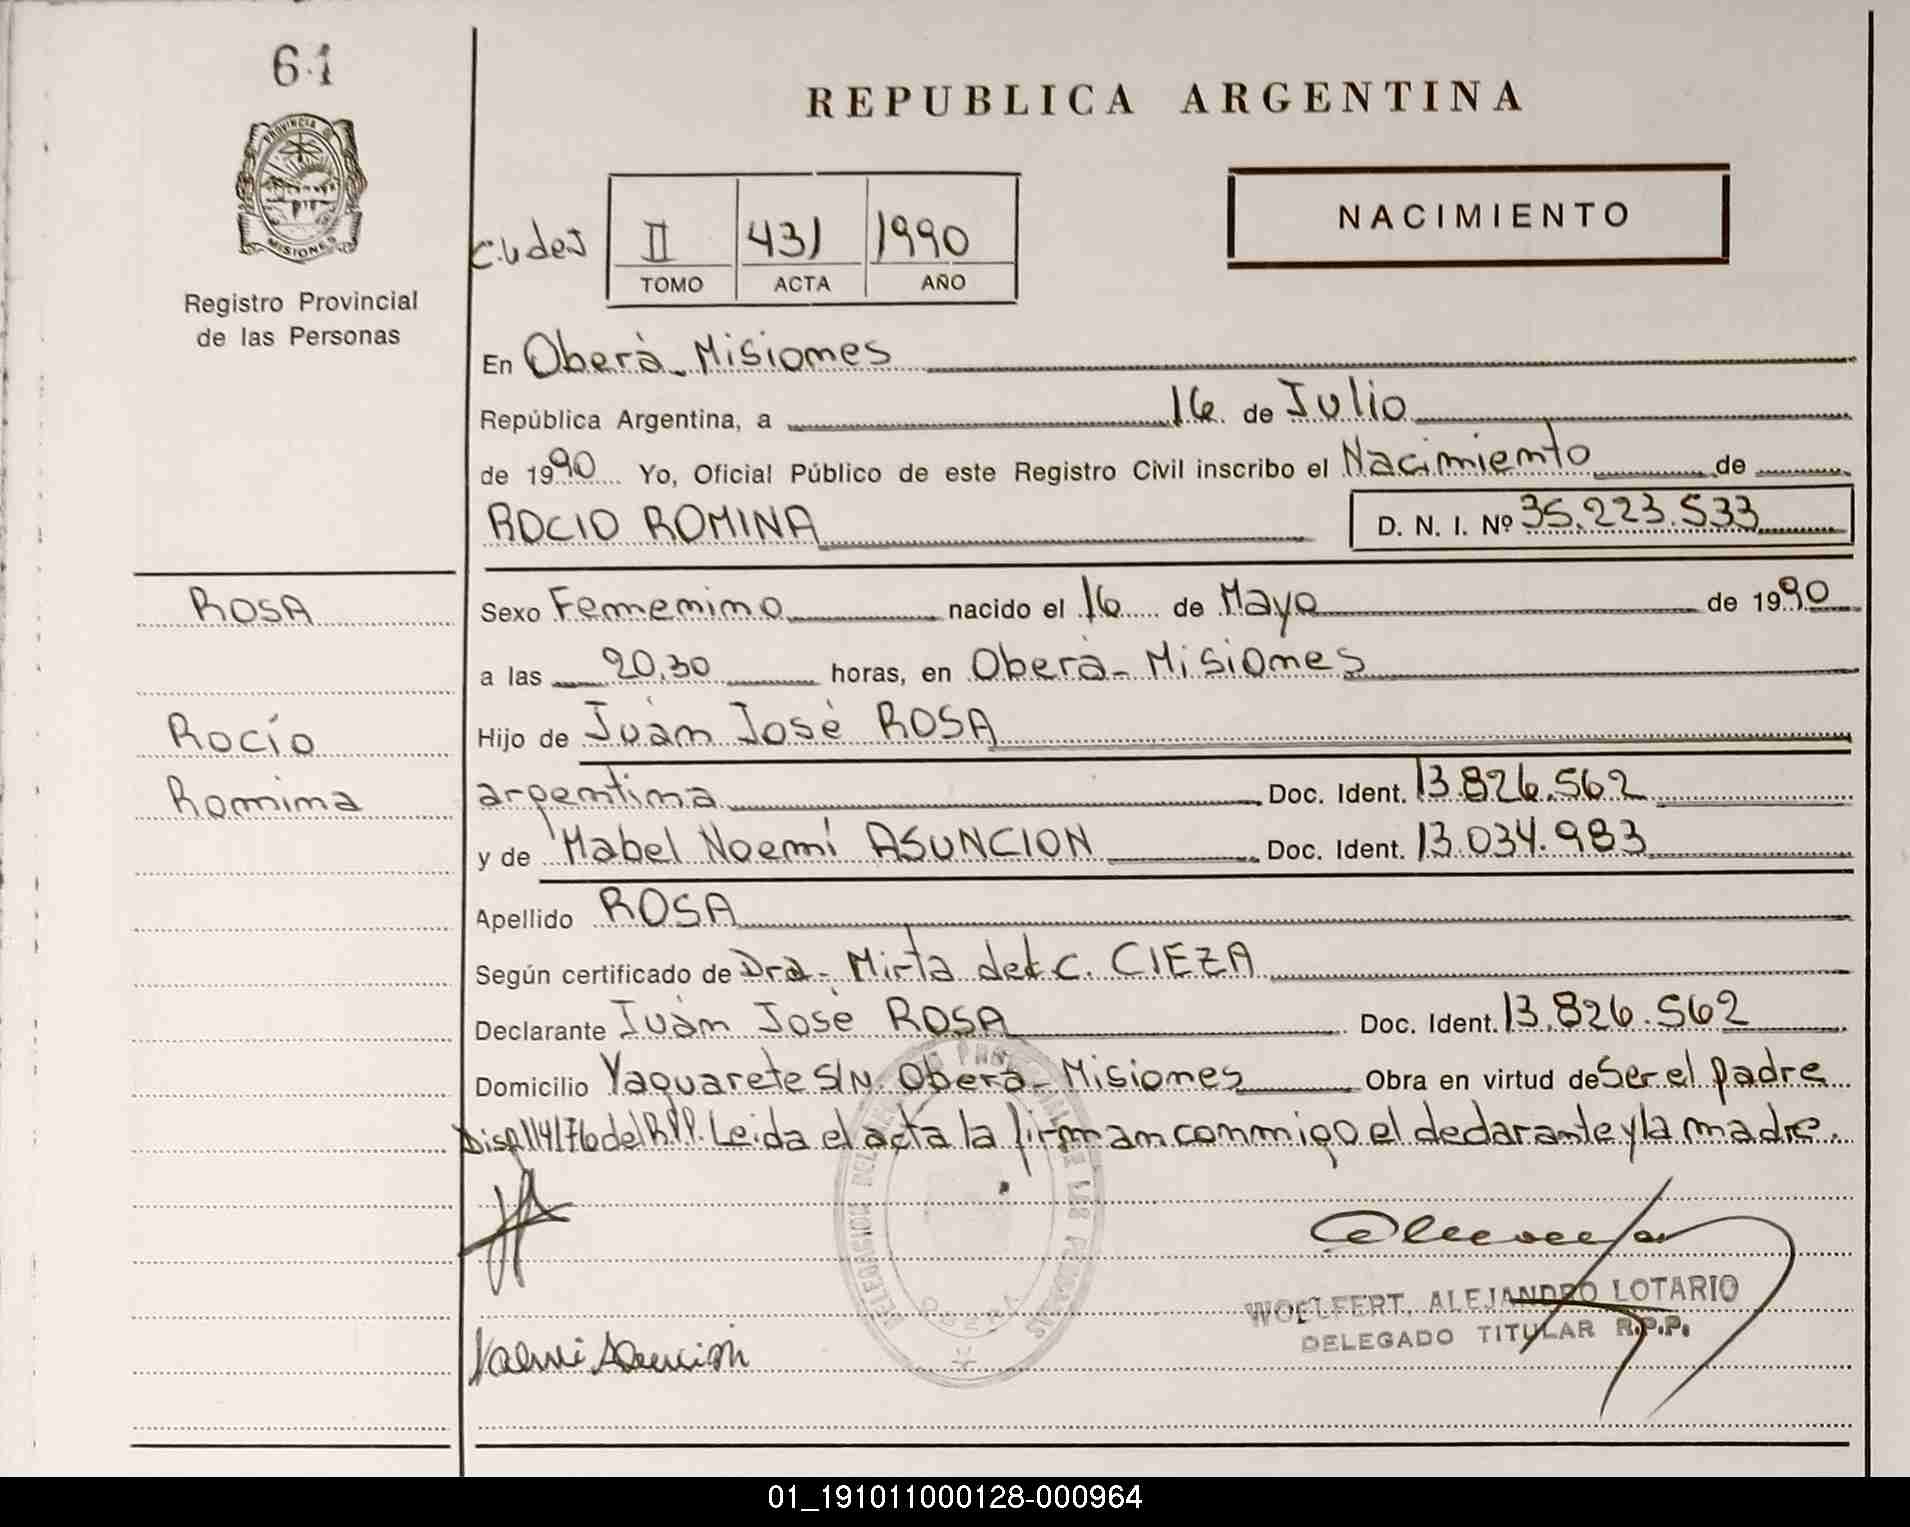 61
PROVINCIA DE
MISIONES
Registro Provincial
de las Personas
REPUBLICA ARGENTINA
II 431 1990
TOMO ACTA AÑO
NACIMIENTO
En Oberà - Misiones
República Argentina, a 16 de Julio
de 1990 Yo, Oficial Público de este Registro Civil inscribo el Nacimiento de
ROCIO ROMINA D. N. I. Nº 35.223.533
ROSA
Sexo Femenino nacido el 16 de Mayo de 1990
a las 20,30 horas, en Oberà - Misiones
Rocío
Hijo de Juàn Josè ROSA
Romina
argentina Doc. Ident. 13.826.562
y de Mabel Noemí ASUNCION Doc. Ident. 13.034.983
Apellido ROSA
Según certificado de Dra. Mirta del C. CIEZA
Declarante Juàn Josè ROSA Doc. Ident. 13.826.562
Domicilio Yaguarete S/N. Oberà - Misiones Obra en virtud de Ser el padre
Disp. 114/76 del R.P.P. Leida el acta la firman conmigo el declarante y la madre.
DELEGACION DEL REGISTRO PROVINCIAL DE LAS PERSONAS
OBERA
WOELFERT, ALEJANDRO LOTARIO
DELEGADO TITULAR R.P.P.
Noemi Asunción
01_191011000128-000964